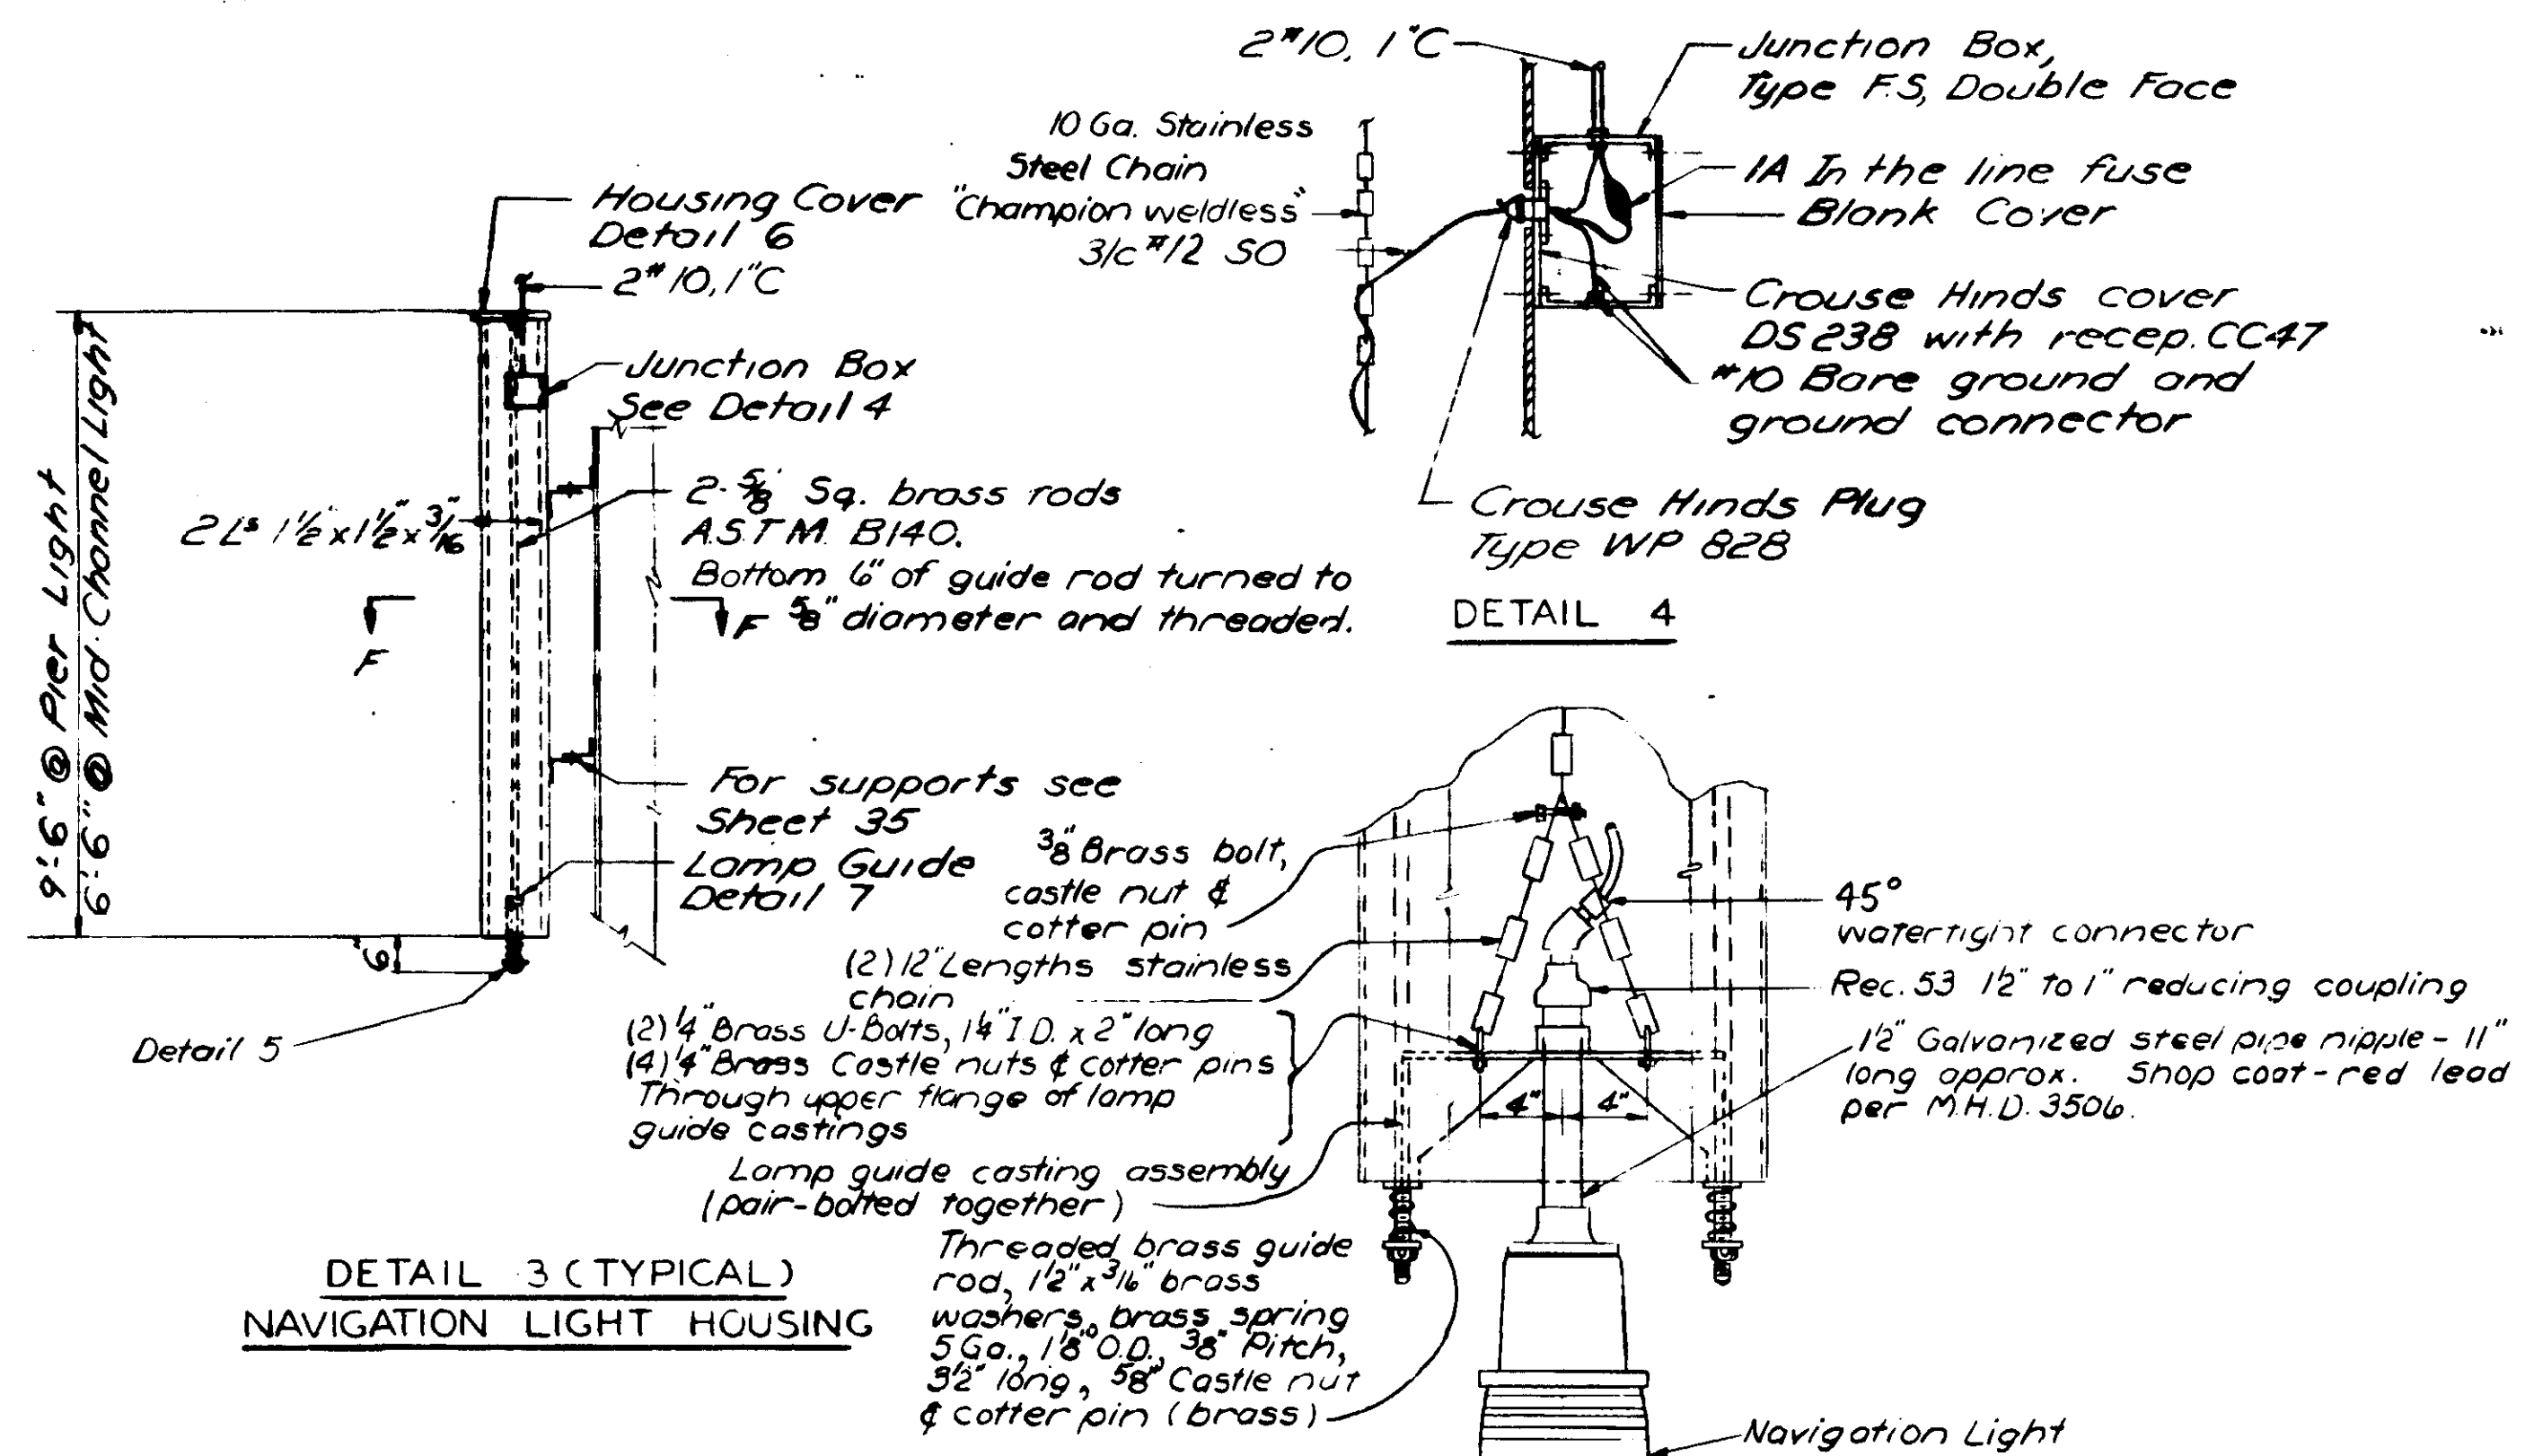 Housing Cover
Detail 6
2#10, 1"C
Junction Box
See Detail 4
9'-6" @ Pier Light
6'-6" @ Mid Channel Light
2 Ls 1½"x1½"x 3/16"
2- 5/8" Sq. brass rods
A.S.T.M. B140.
Bottom 6" of guide rod turned to
5/8" diameter and threaded.
F
F
For supports see
Sheet 35
Lamp Guide
Detail 7
6"
Detail 5
DETAIL 3 (TYPICAL)
NAVIGATION LIGHT HOUSING
2#10, 1"C
Junction Box,
Type F.S, Double Face
10 Ga. Stainless
Steel Chain
"Champion weldless"
3/c #12 SO
1A In the line fuse
Blank Cover
Crouse Hinds cover
DS 238 with recep. CC47
#10 Bare ground and
ground connector
Crouse Hinds Plug
Type WP 828
DETAIL 4
3/8" Brass bolt,
castle nut &
cotter pin
(2) 12" Lengths stainless
chain
(2) 1/4" Brass U-Bolts, 1¼" I.D. x 2" long
(4) 1/4" Brass Castle nuts & cotter pins
Through upper flange of lamp
guide castings
Lamp guide casting assembly
(pair-bolted together)
Threaded brass guide
rod, 1½" x 3/16" brass
washers, brass spring
5 Ga., 1 1/8" O.D., 3/8" Pitch,
3½" long, 5/8" Castle nut
& cotter pin (brass)
45°
watertight connector
Rec. 53 1½" to 1" reducing coupling
1½" Galvanized steel pipe nipple - 11"
long approx. Shop coat - red lead
per M.H.D. 3506.
4"
4"
Navigation Light